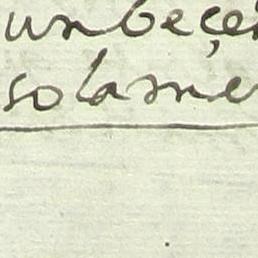 unbeçe
solame